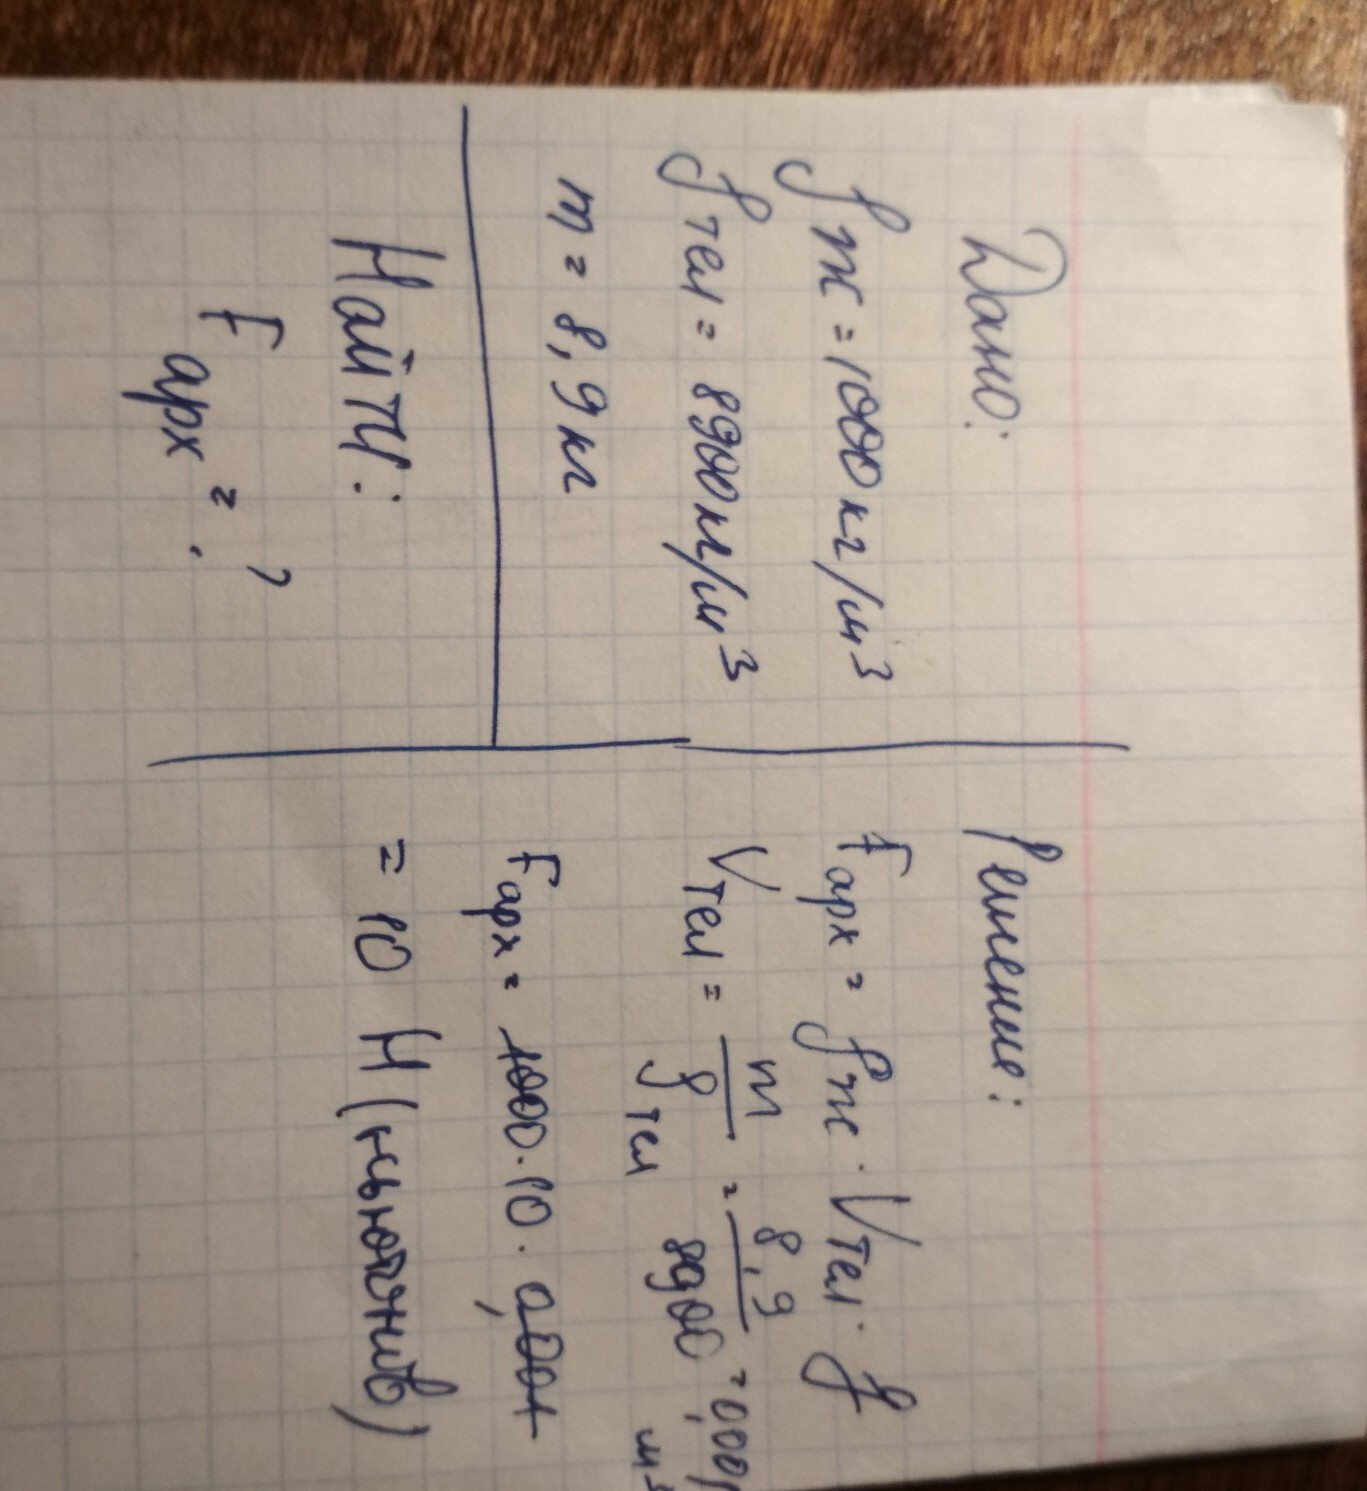 Дано:
ρж = 1000 кг/м³
ρтел = 8900 кг/м³
m = 8,9 кг
Найти:
Fарх = ?
Решение:
Fарх = ρж · Vтел · g
Vтел = m/ρтел = 8,9/8900 = 0,001 м³
Fарх = 1000 · 10 · 0,001
= 10 Н (ньютонів)